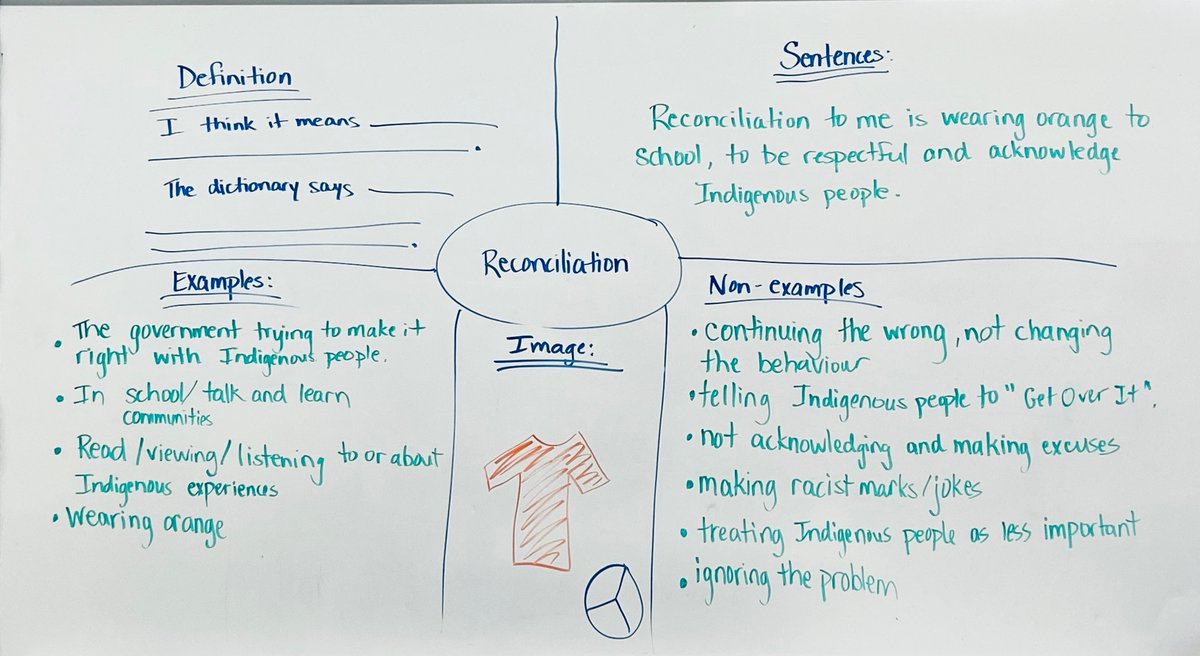 Definition
I think it means
.
The dictionary says
.
Sentences:
Reconciliation to me is wearing orange to
school, to be respectful and acknowledge
Indigenous people.
Reconciliation
Examples:
• The government trying to make it
right with Indigenous people.
• In school/talk and learn
communities
• Read/viewing/listening to or about
Indigenous experiences
• Wearing orange
Image:
Non-examples
• continuing the wrong, not changing
the behaviour
• telling Indigenous people to "Get Over It".
• not acknowledging and making excuses
• making racist marks/jokes
• treating Indigenous people as less important
• ignoring the problem